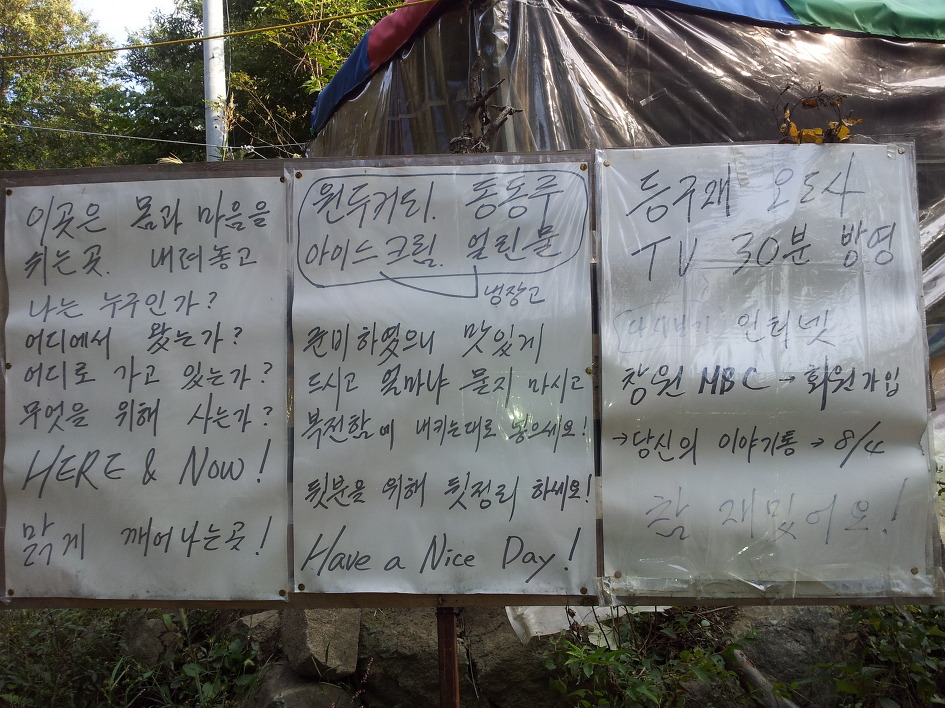 이곳은 몸과 마음을
쉬는곳. 내려놓고
나는 누구인가?
어디에서 왔는가?
어디로 가고 있는가?
무엇을 위해 사는가?
HERE & NOW!
맑게 깨어나는곳!
원두커피. 동동주
아이스크림. 얼린물
냉장고
준비하였으니 맛있게
드시고 얼마냐 묻지 마시고
북전함에 내키는대로 넣으세요!
뒷분을 위해 뒷정리 하세요!
Have a Nice Day!
등구재 오도사
TV 30분 방영
(다시보기 인터넷
창원 MBC → 회원가입
→당신의 이야기통 → 8/4
참 재밌어요!